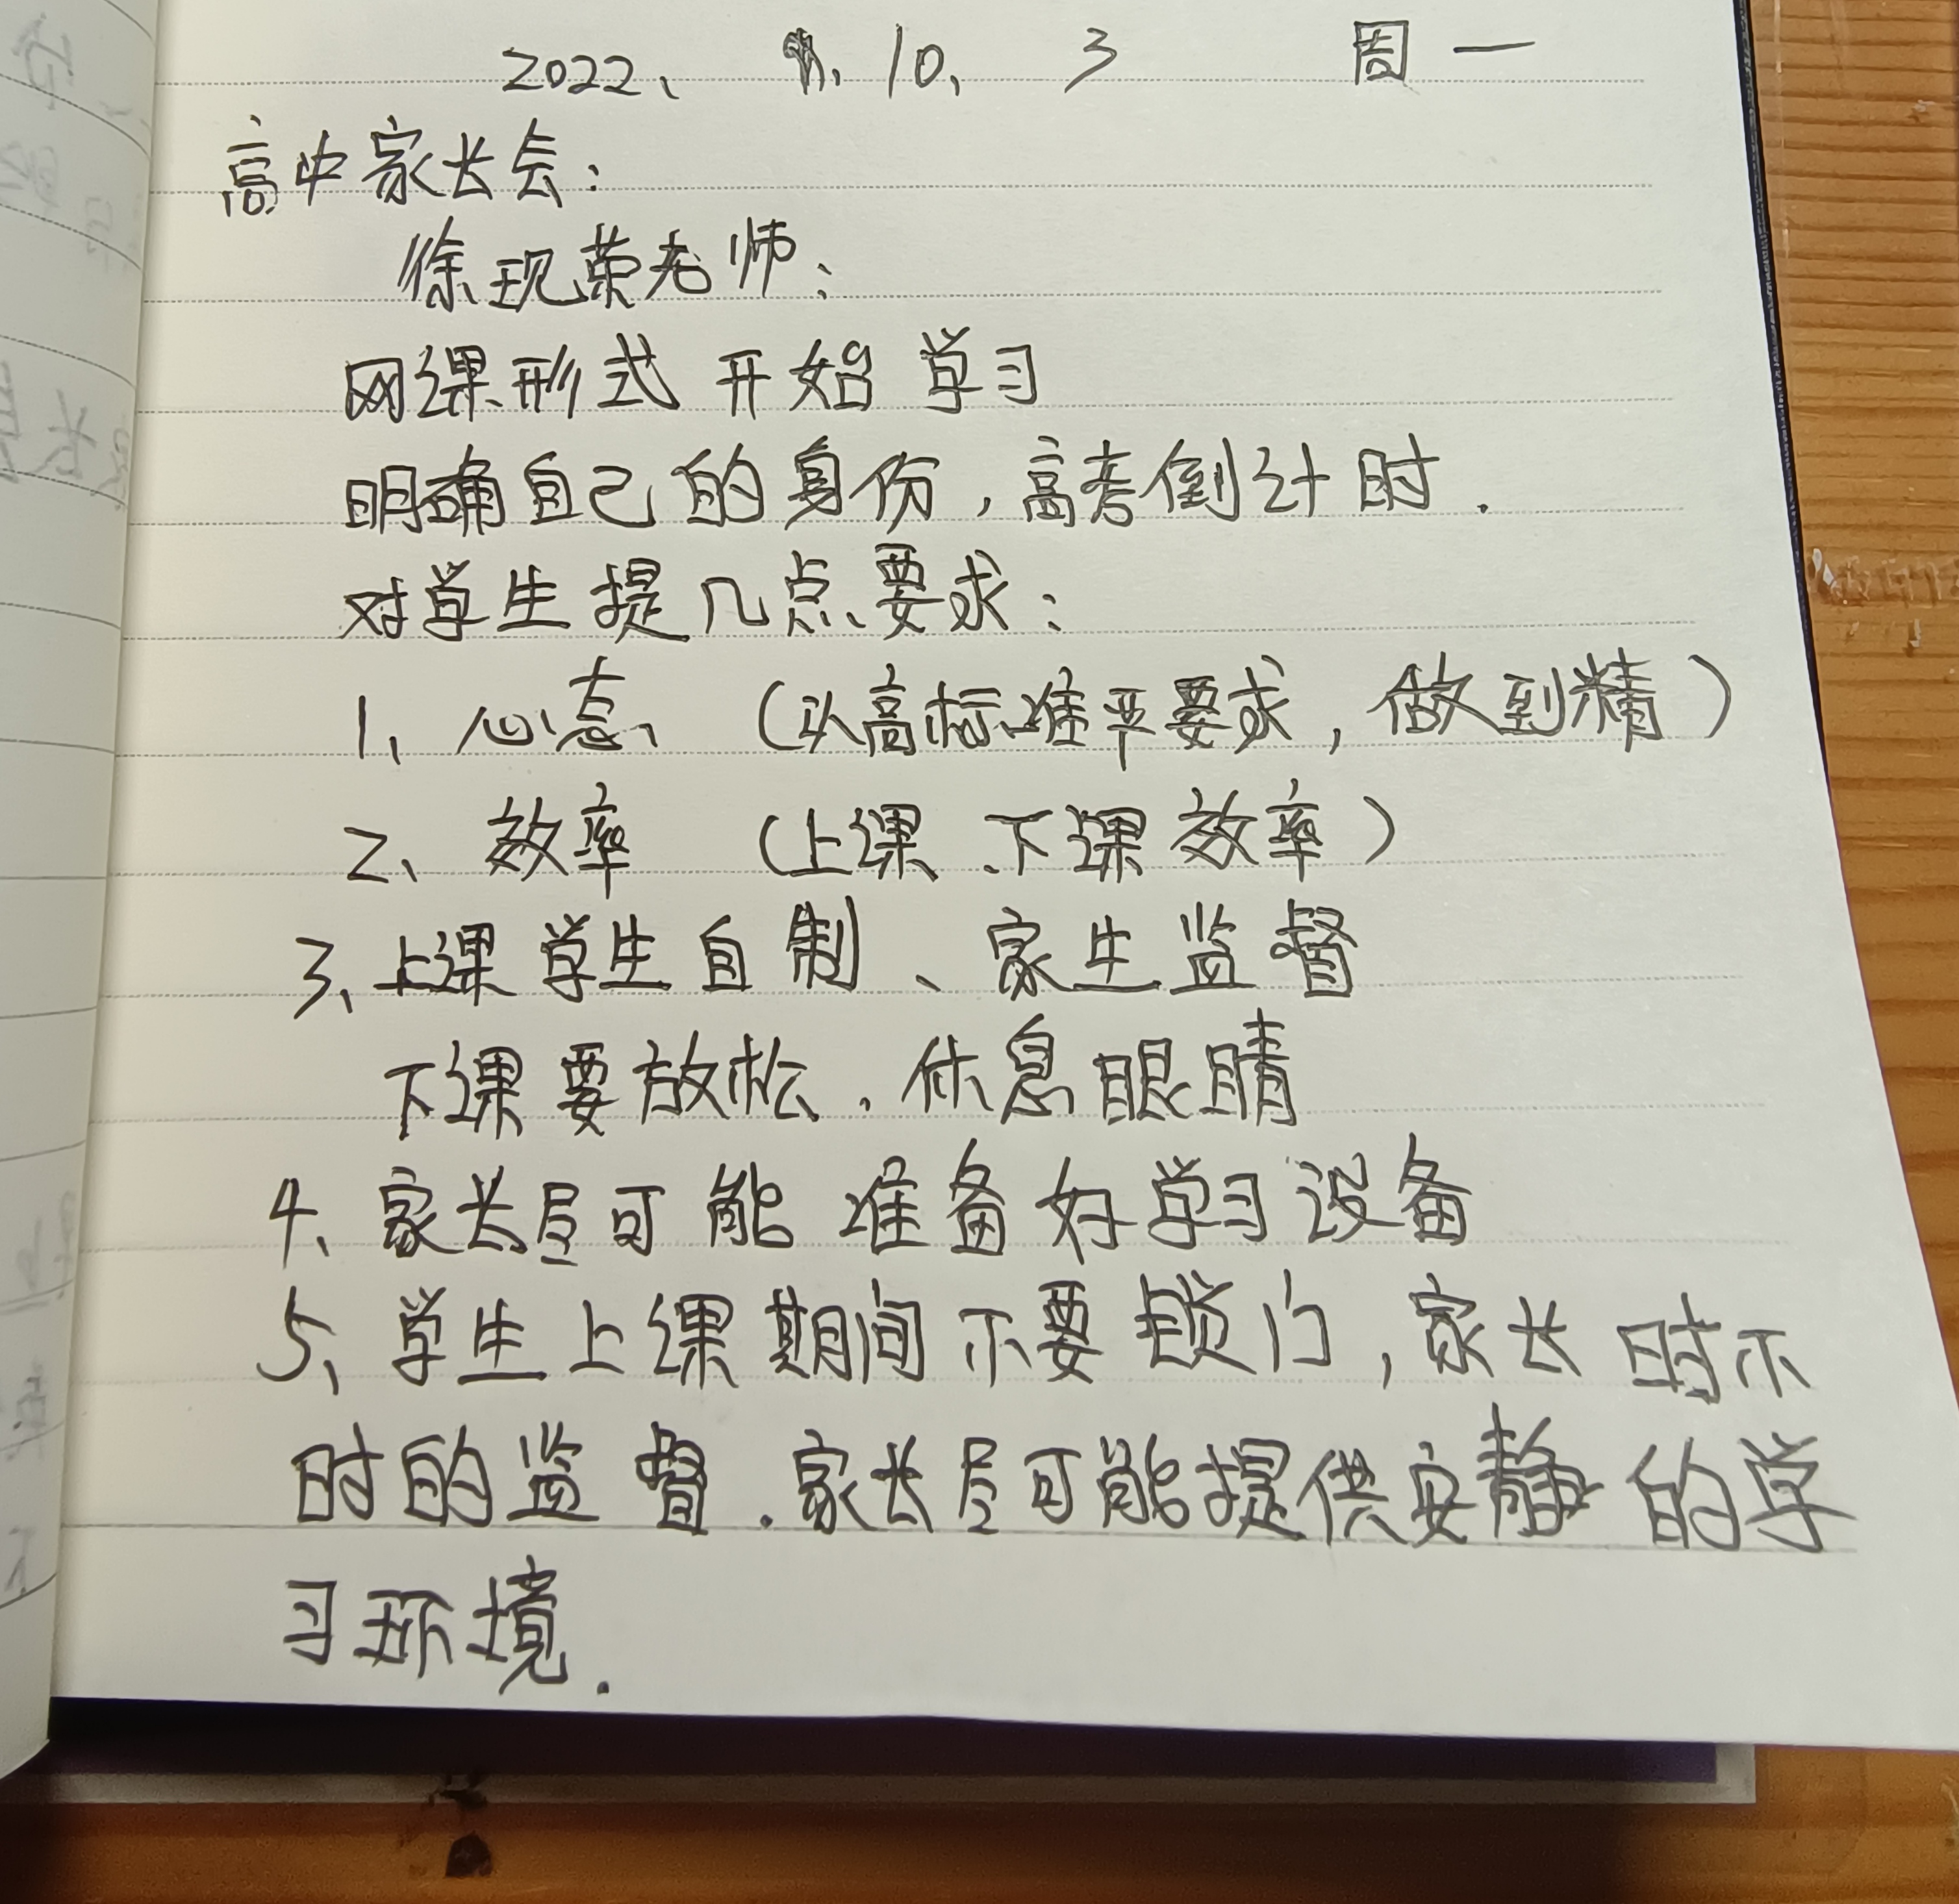 2022、10、3 周一
高中家长会：
徐现荣老师：
网课形式 开始 学习
明确自己的身份，高考倒计时.
对学生提几点要求：
1、心态、（以高标准平要求，做到精）
2、效率 （上课、下课效率）
3、上课学生自制、家生监督
下课要放松.休息眼睛
4、家长尽可能准备好学习设备
5、学生上课期间不要锁门，家长时不
时的监督.家长尽可能提供安静的学
习环境.